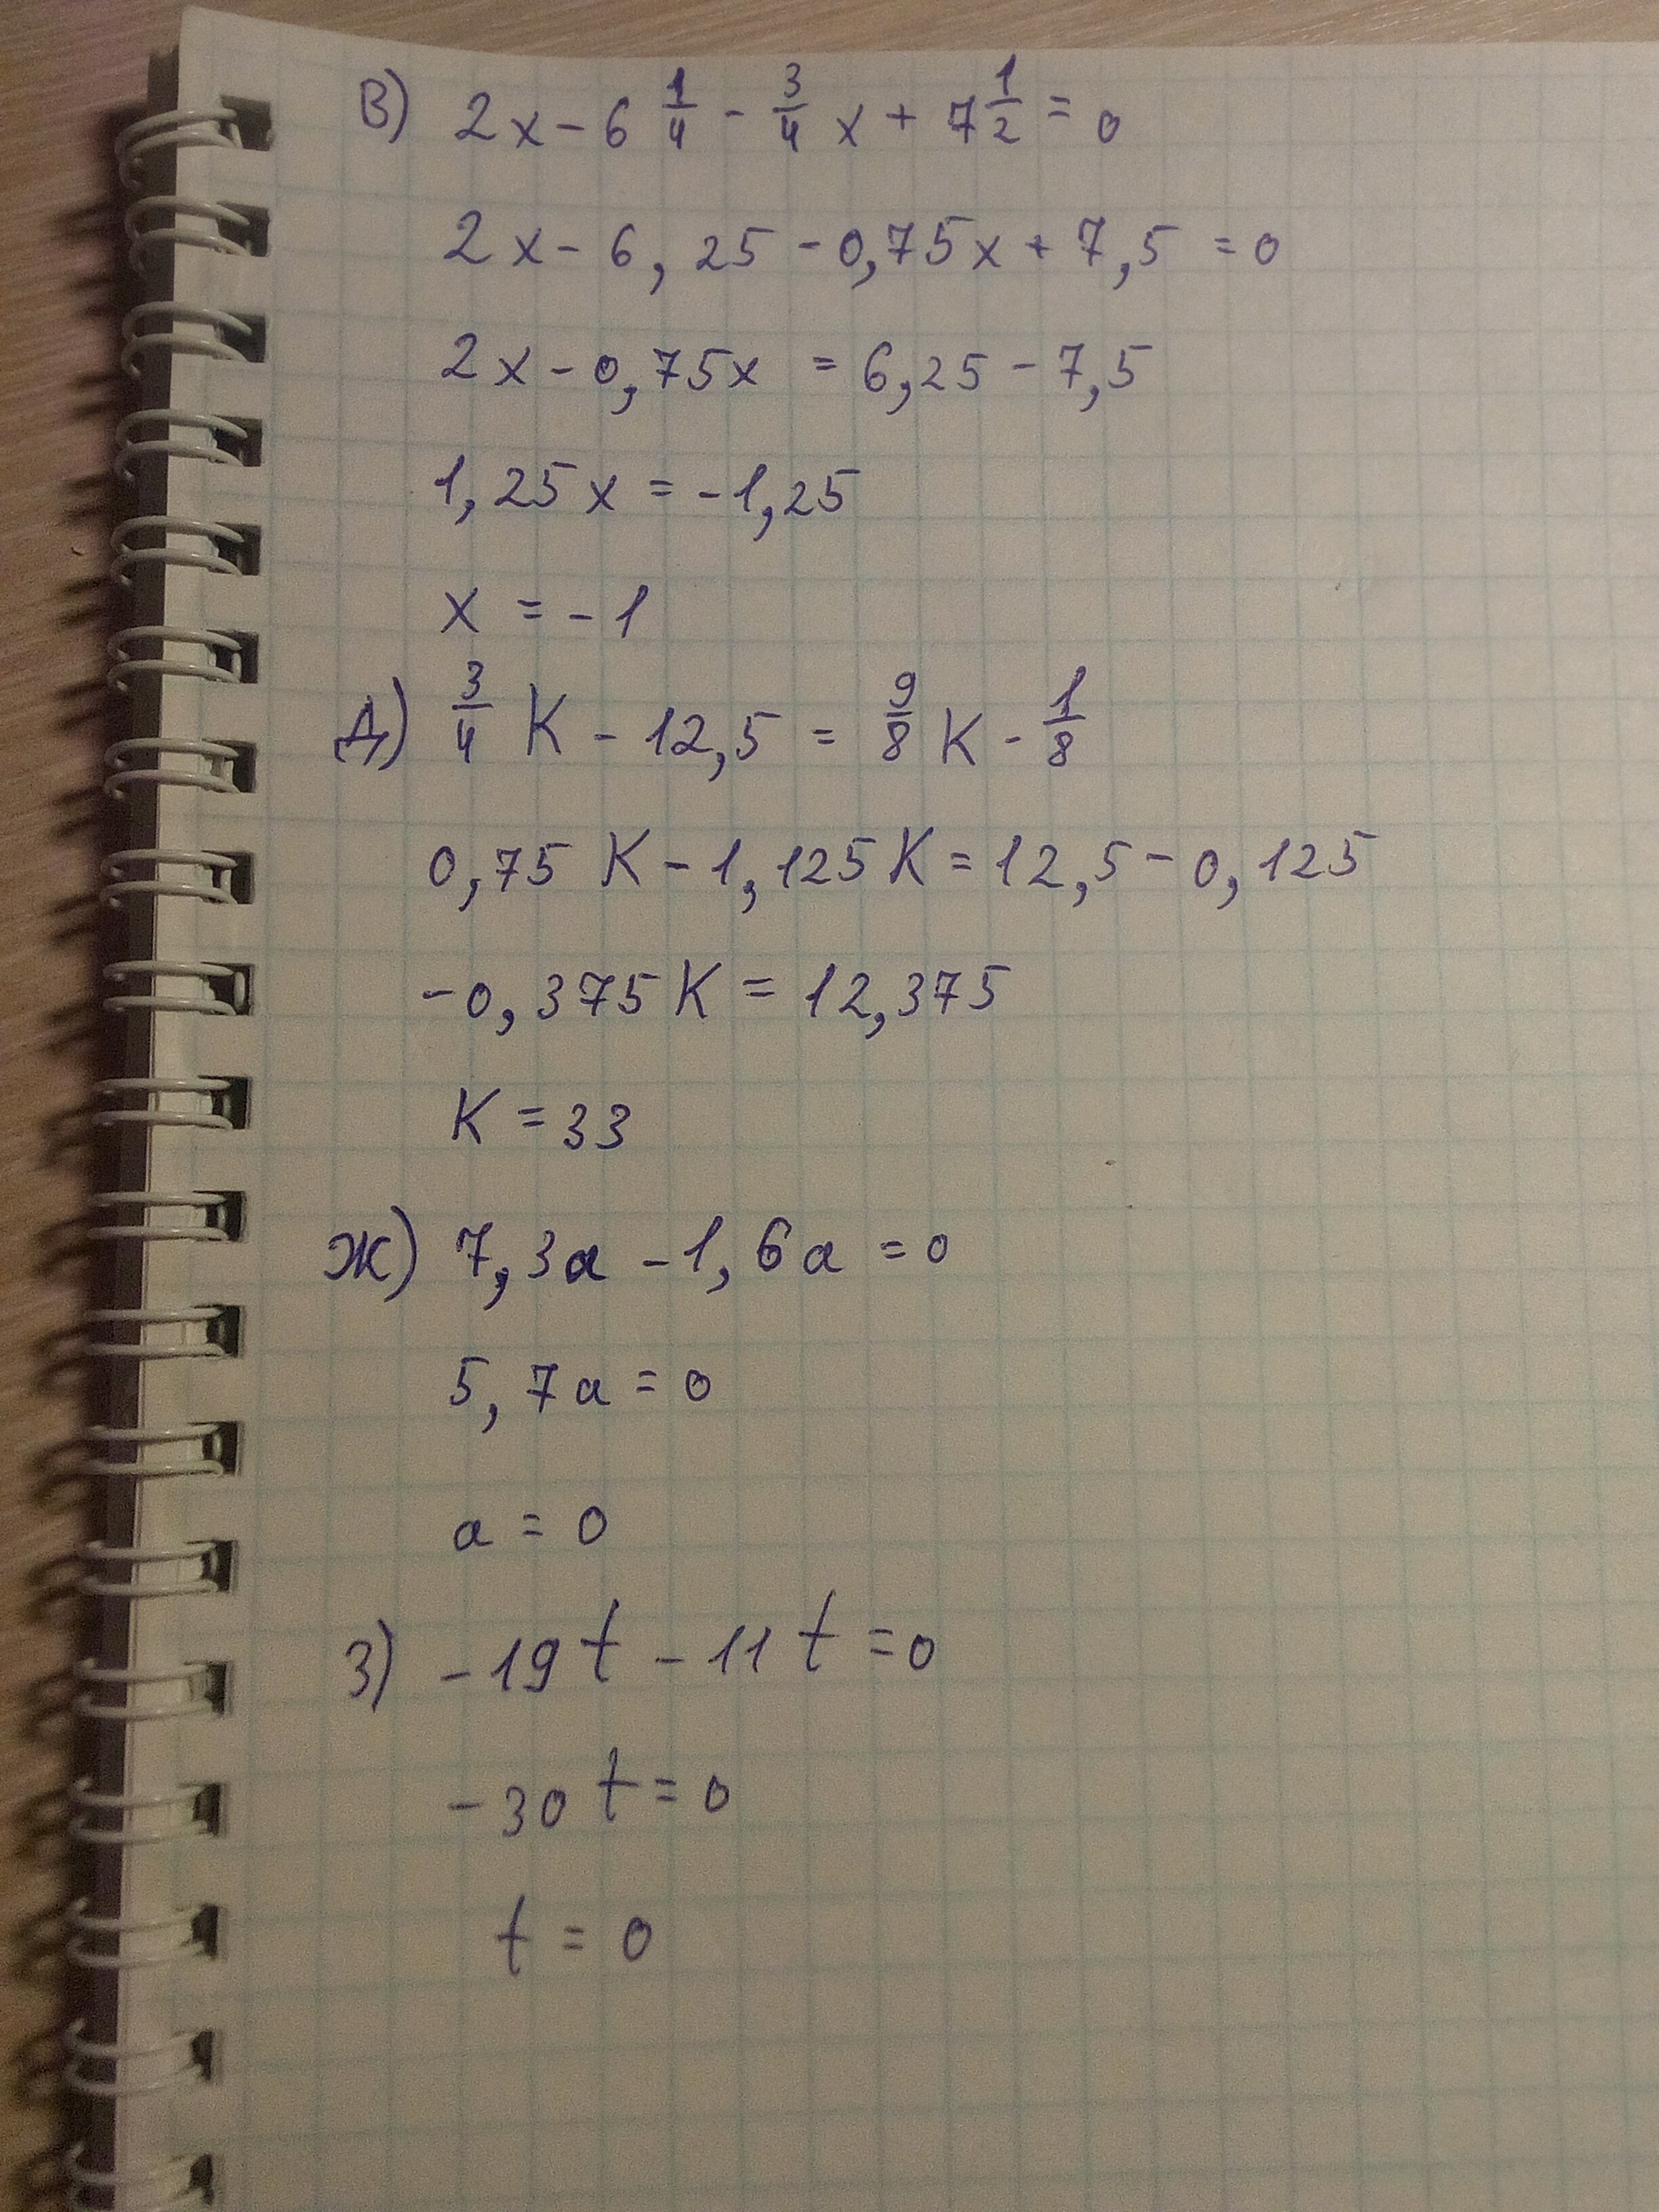 В) 2x - 6 1/4 - 3/4 x + 7 1/2 = 0
2x - 6,25 - 0,75x + 7,5 = 0
2x - 0,75x = 6,25 - 7,5
1,25x = -1,25
x = -1
Д) 3/4 K - 12,5 = 9/8 K - 1/8
0,75K - 1,125K = 12,5 - 0,125
-0,375K = 12,375
K = 33
Ж) 7,3a - 1,6a = 0
5,7a = 0
a = 0
З) -19t - 11t = 0
-30t = 0
t = 0